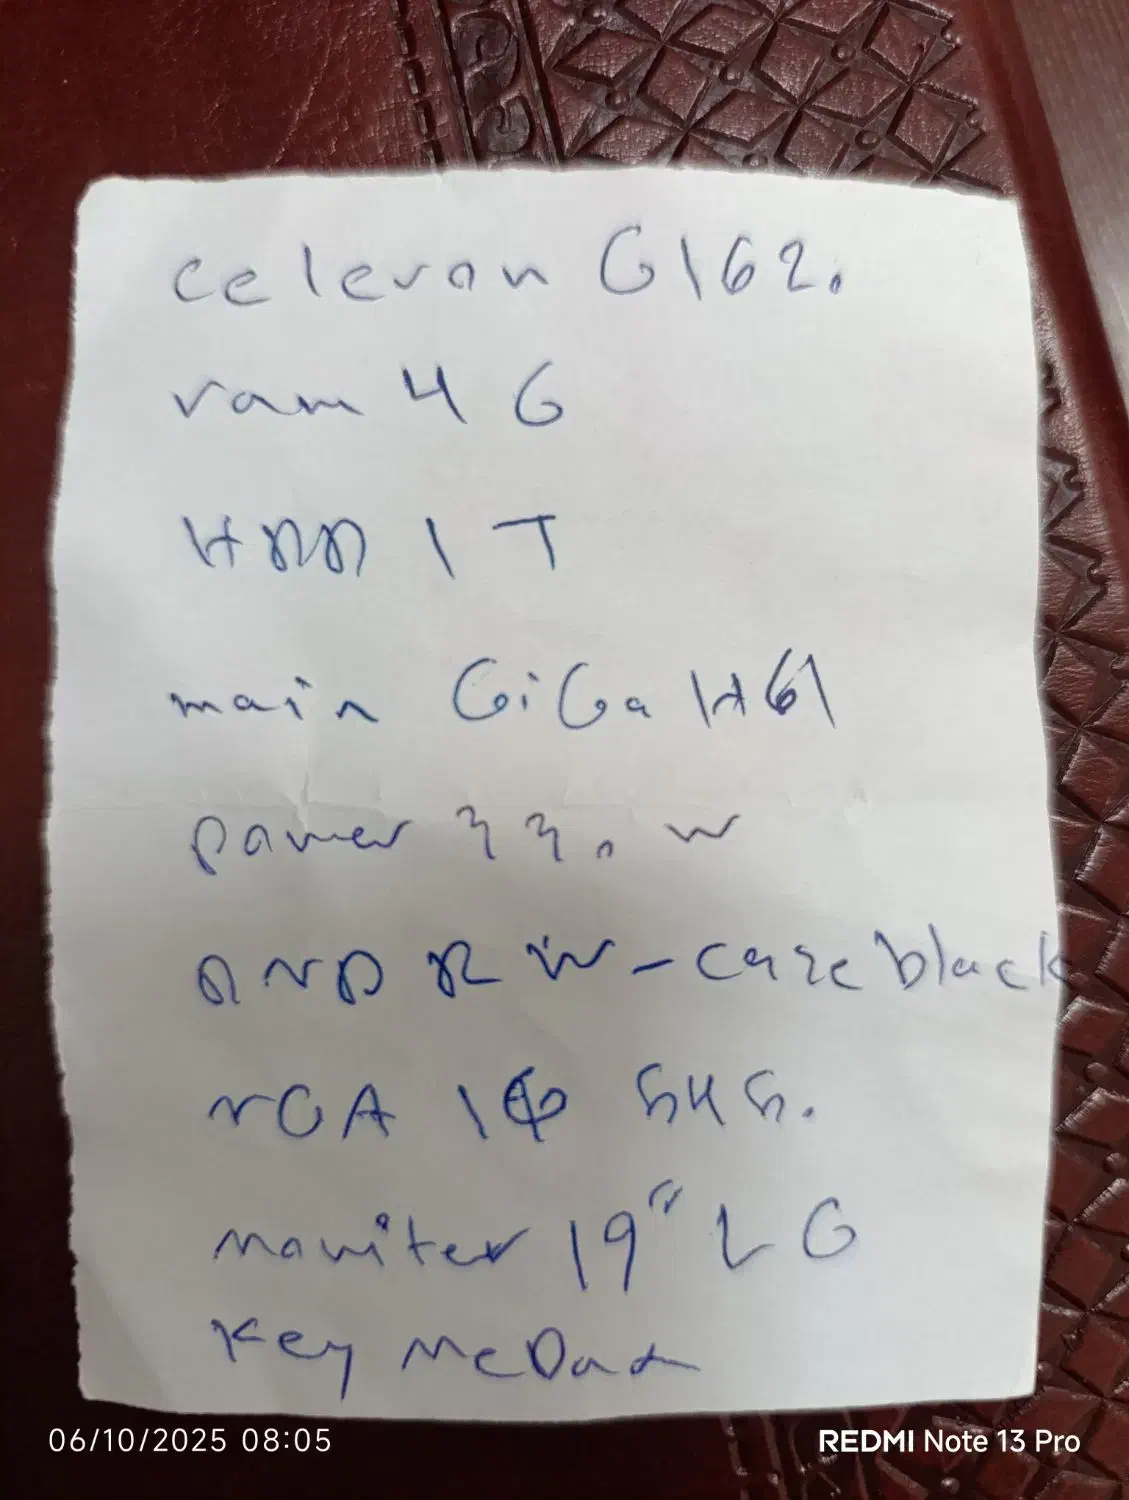 celeron G162.
ram 4 G
HDD 1 T
main GiGa H61
power 330 w
DVD RW - case black
VGA 1G
moniter 19" LG
Key
06/10/2025 08:05
REDMI Note 13 Pro